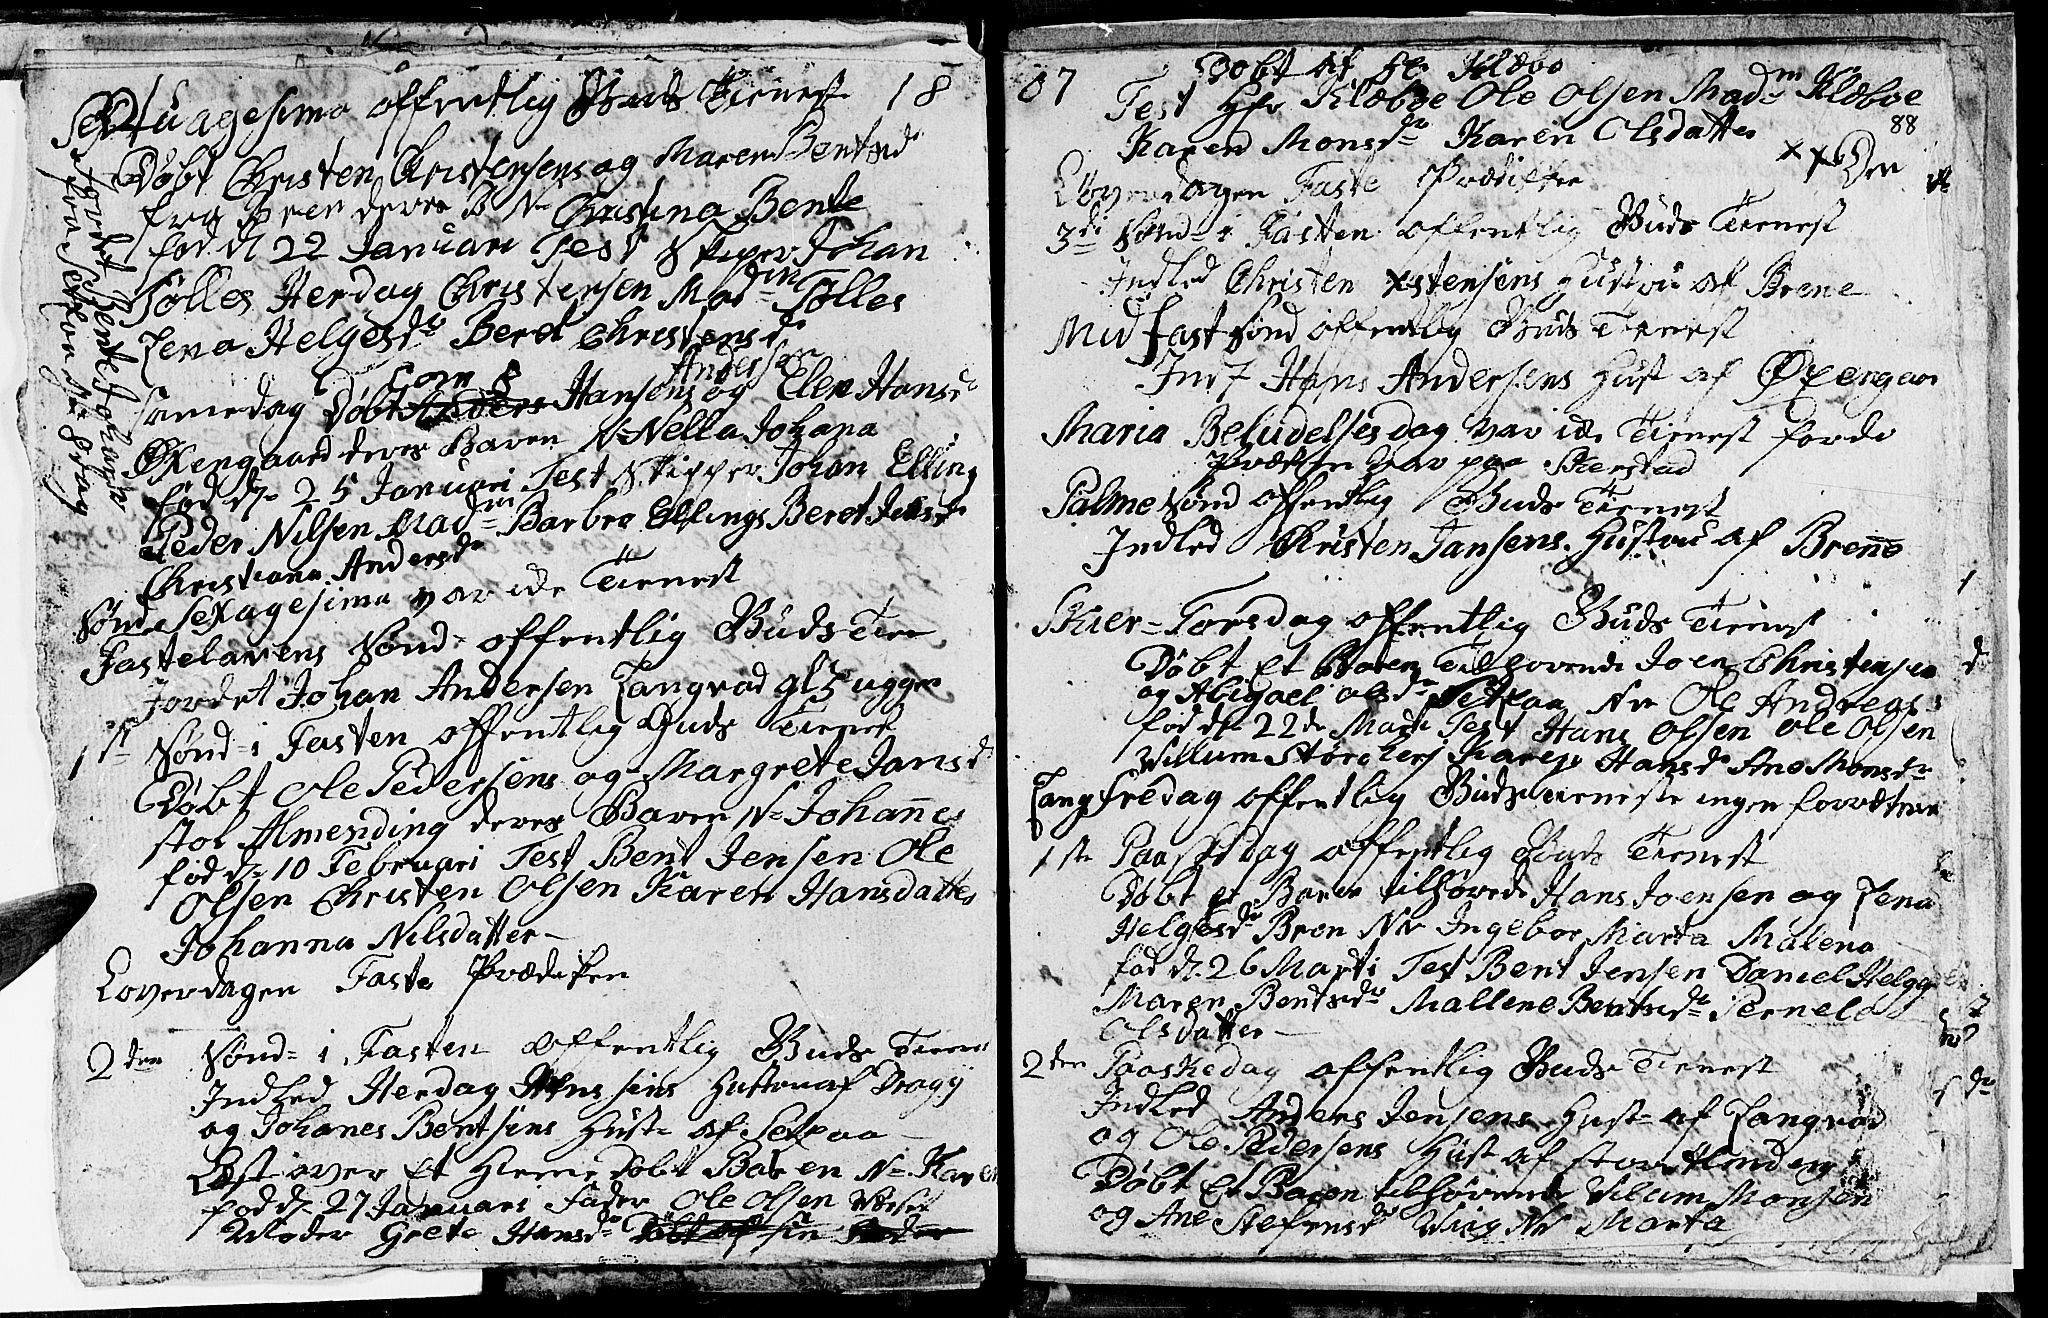 Septuagesima offentlig Guds Tienest 18
Døbt Christen Christensens og Maren Bentsd
fra Bren deres B N- Christina Bente
fød d 22 Januari Test Skiper Johan
Tølles Herdag Christensen Madm Tølles
Lena Helgesdr Beret Christensd
Jordet Bente Johan
paa Setraa
samedag Døbt Hansens og Elen Hansd
Andersen
Øxengaard deres Baren N- Nella Johana
fød d- 25 Januari Test Skipper Johan Elling
Peder Nilsen Madm Barbro Ellings Beret Jensd
Christiana Andersdr
Sønd Sexagesima var icke Tienest
Fastelavens Sønd- offentlig Guds Tien
Jordet Johan Andersen Langvad gl 3 uger
1st Sønd- i Fasten offentlig Guds Tienest
Døbt Ole Pedersens og Margrete Jansd
stor Almending deres Baren N- Johannes
fød d- 10 Februari Test Bent Jensen Ole
Olsen Christen Olsen Karen Hansdatter
Johanna Nilsdatter
Loverdagen Faste Prædiken
2den Sønd- i Fasten offentlig Guds Tienest
Indled Herdag Hustru af Dragø
og Johanes Bentsens Hust- af Setraa
Læst over Et Hieme døbt Baren N- Karen
fød d- 27 Januari Fader Ole Olsen
Moder Grete Hansd- Døbt af sin Fader
87 Døbt af Hr Klæbo
Test Hr Klæboe Ole Olsen Madm Klæboe
88
Karen Monsdr Karen Olsdatter
Løverdagen Faste Prædiken
3di Sønd- i Fasten offentlig Guds Tienest
Indled Christen Xstensens Hustru af Brene
Midfast Sønd offentlig Guds Tienest
Indl Hans Andersens Hust af Øxengaar
Maria Beludelses dag var icke Tienest fordi
Præsten var paa Skerstad
Palme Sønd offentlig Guds Tienest
Indled Christen Jansens Hustru af Brenne
Skier-Torsdag offentlig Guds Tienest
Døbt Et Baren Tilhørende Joen Christensen
og Abigael Olsdr Setraa Nv Ole Andreas
fød d- 22de Marti Test Hans Olsen Ole Olsen
Villum Størchers Karen Hansd- Ane Monsdr
Langfredag offentlig Guds tieneste ingen forrætning
1ste Paaskedag offentlig Guds Tienest
Døbt et Baren tilhørende Hans Joensen og Lena
Helgesdr Bren Nv Ingebor Marta Malena
fød d- 26 Marti Test Bent Jensen Daniel Helges
Maren Bentsdr Mallene Bentsd- Pernele
Olsdatter
2den Paaskedag offentlig Guds Tienest
Indled Anders Jensens Hust- af Langvad
og Ole Pedersens Hust af stor Almending
Døbt Et Baren tilhørende Vilum Monsen
og Ane Stefensdr Viig Nv Marta